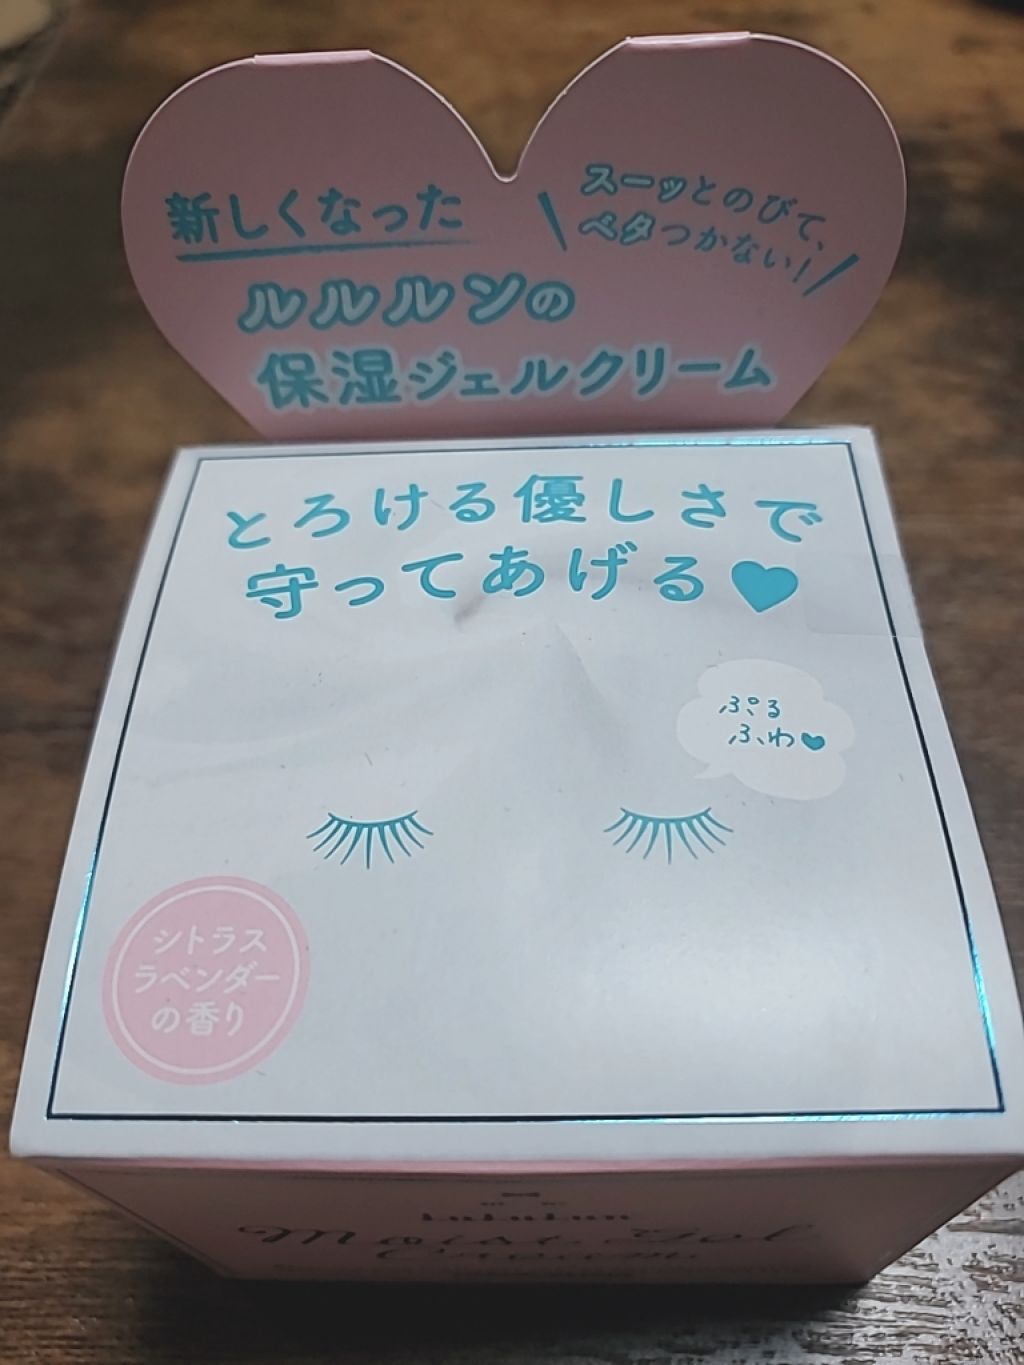 新しくなった
スーッとのびて、
ベタつかない!
ルルルンの
保湿ジェルクリーム
とろける優しさで
守ってあげる♥
ぷる
ふわ♥
シトラス
ラベンダー
の香り
LuLuLun
Moist Gel
Cream